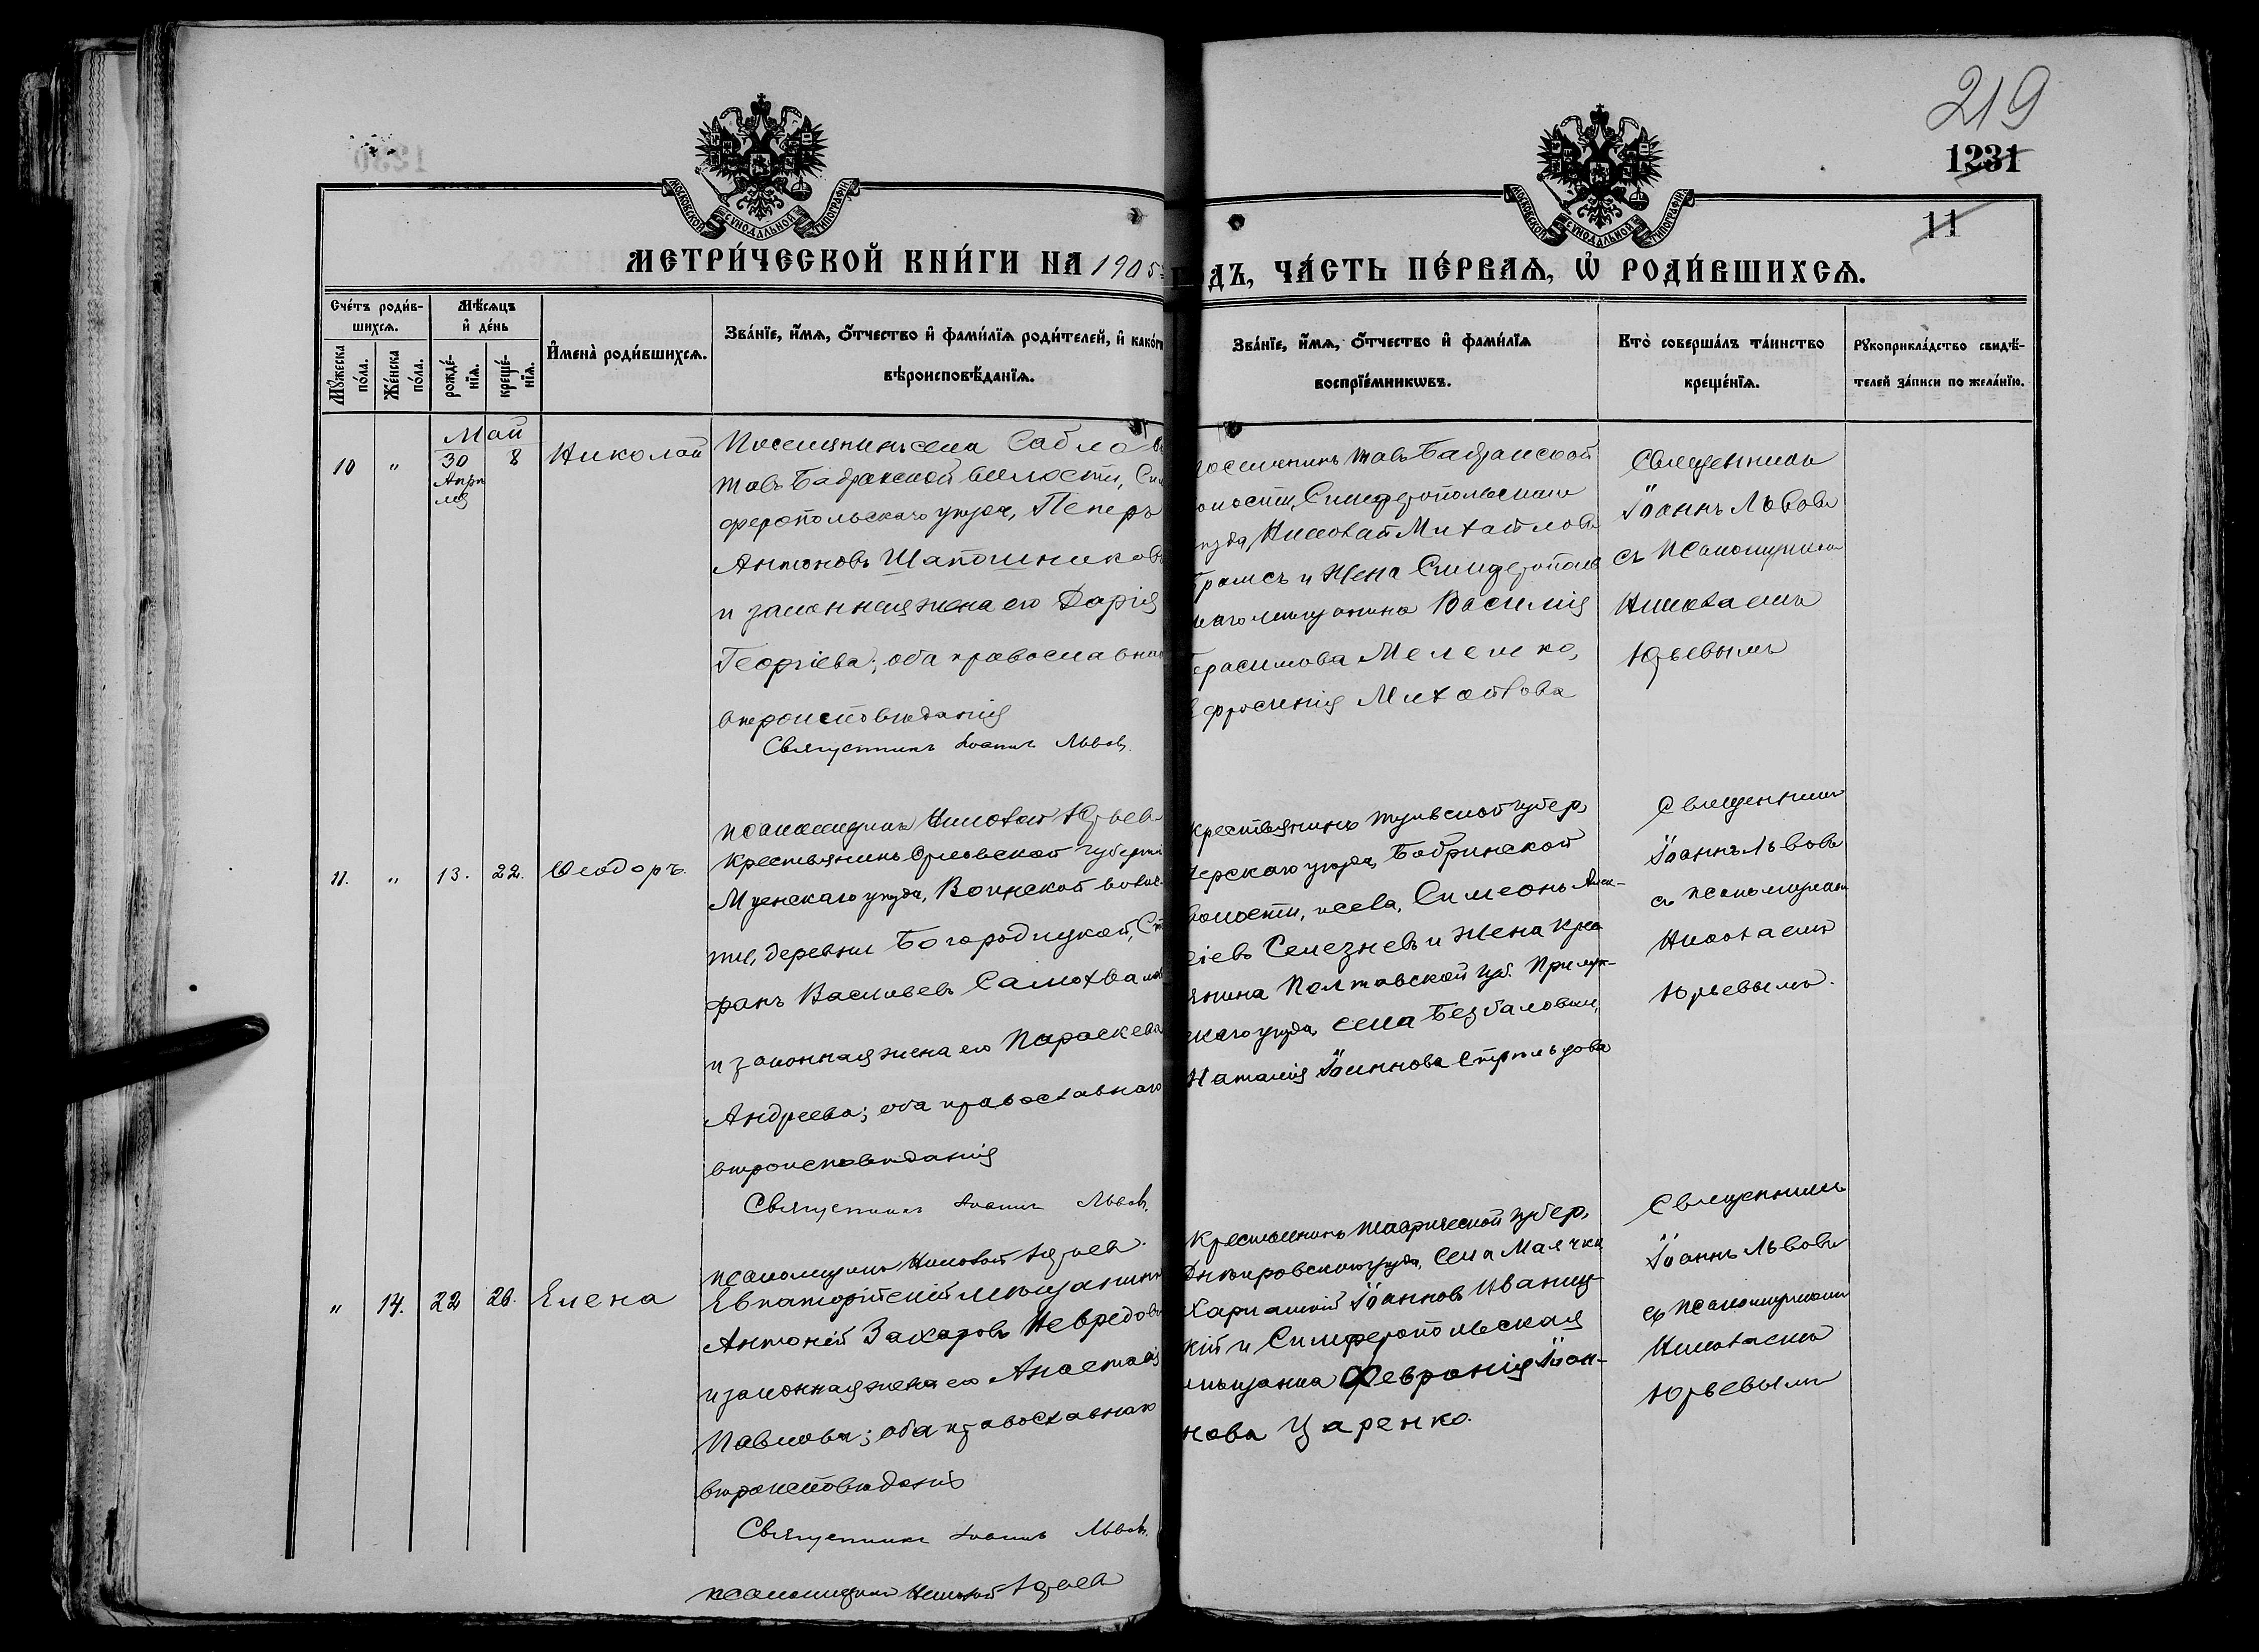 219
1231
11
МОСКОВСКОЙ СѴНОДАЛЬНОЙ ТИПОГРАФІИ.
МОСКОВСКОЙ СѴНОДАЛЬНОЙ ТИПОГРАФІИ.
МЕТРИ́ЧЕСКОЙ КНИ́ГИ НА 1905
ДЪ, ЧА́СТЬ ПЕ́РВАѦ, Ѡ҆ РОДИ́ВШИХСѦ.
Сче́тъ роди́в-
шихсѧ.
Мꙋ́жеска
по́ла.
Же́нска
по́ла.
Мѣ́сѧцъ
и҆ де́нь
рожде́-
нїѧ.
креще́-
нїѧ.
И҆мена̀ роди́вшихсѧ.
Зва́нїе, и҆́мѧ, ѻ҆́тчество и҆ фами́лїѧ роди́телей, и҆ како́гѡ
вѣроисповѣ́данїѧ.
Зва́нїе, и҆́мѧ, ѻ҆́тчество и҆ фами́лїѧ
воспрїе́мникѡвъ.
Кто̀ соверша́лъ та́инство
креще́нїѧ.
Рꙋкоприкла́дство свидѣ́-
телей за́писи по жела́нїю.
Май
10 " 30 8 Николай
Апрѣ
ля
Поселянинъ села Сабло
тавъ Бадракской волости, Сим
феропольскаго уѣзда, Петръ
Антоновъ Шапошниковъ
и законная жена его Дарія
Георгіева; оба православнаго
вѣроисповѣданія
Священникъ Іоаннъ Львовъ.
псаломщикъ Николай Юрьевъ
поселянинъ тавъ Бадракской
волости, Симферопольскаго
уѣзда, Николай Михайловъ
и жена Симферополь
скаго мѣщанина Василія
Герасимова Мелешко,
Ефросинія Михайлова
Священникъ
Іоаннъ Львовъ
съ псаломщикомъ
Николаемъ
Юрьевымъ
11. " 13. 22. Ѳеодоръ.
Крестьянинъ Орловской губерніи
Мценскаго уѣзда, Воинской волос
ти, деревни Богородицкой, Сте
фанъ Васильевъ Самохваловъ
и законная жена его Параскева
Андреева; оба православнаго
вѣроисповѣданія
Священникъ Іоаннъ Львовъ.
псаломщикъ Николай Юрьевъ
Крестьянинъ Тульской губер.
уѣзда, Бобринской
волости, Симеонъ Алек-
сіевъ Селезневъ и жена кре
янина Полтавской губ. Прилук-
скаго уѣзда, села Безбаловки,
Наталія Іоаннова Стрѣльцова
Священникъ
Іоаннъ Львовъ
съ псаломщикомъ
Николаемъ
Юрьевымъ.
" 14. 22 26. Елена
Евпаторійскій мѣщанинъ
Антоній Захаровъ Невредовъ
и законная жена его Анастасія
Павлова; оба православнаго
вѣроисповѣданія
Священникъ Іоаннъ Львовъ.
псаломщикъ Николай Юрьевъ
Крестьянинъ Таврической губер.
Днѣпровскаго уѣзда, села Маячки
Харлампій Іоанновъ Иваниц-
кій и Симферопольская
мѣщанка Февронія Іоан-
нова Царенко.
Священникъ
Іоаннъ Львовъ
съ псаломщикомъ
Николаемъ
Юрьевымъ